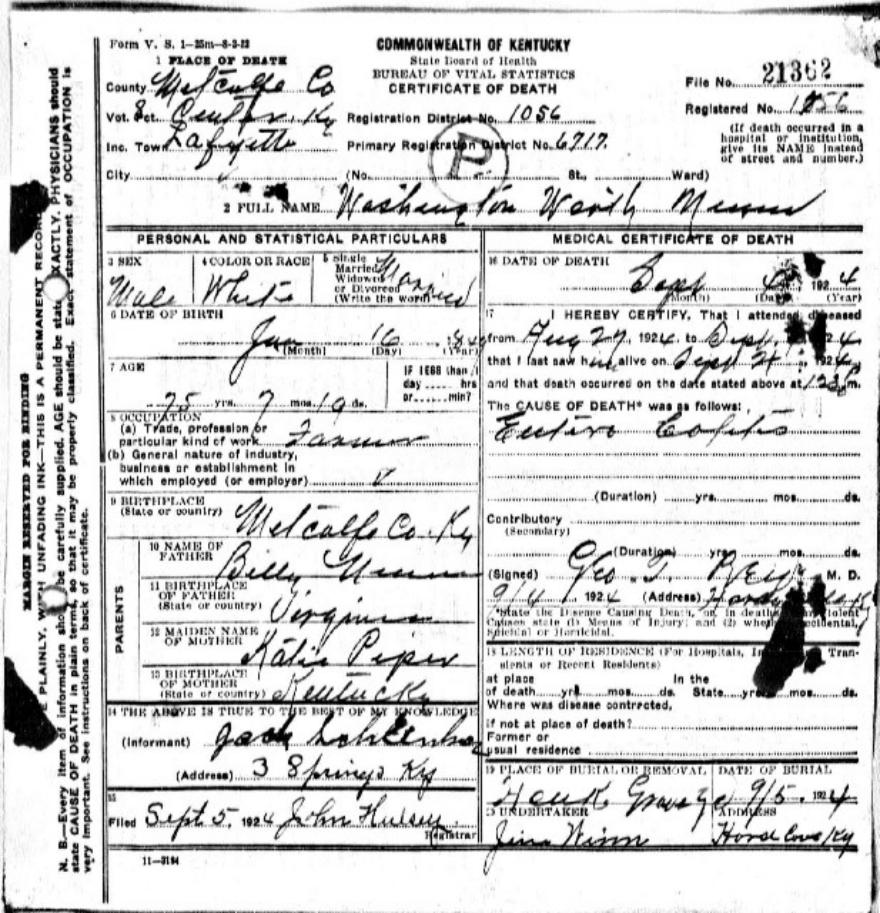 Form V. S. 1—25m—8-2-22
COMMONWEALTH OF KENTUCKY
State Board of Health
BUREAU OF VITAL STATISTICS
CERTIFICATE OF DEATH
File No. 21362
Registered No.
(If death occurred in a hospital or institution, give its NAME instead of street and number.)
1 PLACE OF DEATH
County Metcalfe Co
Vot. Pct. Center Ky
Inc. Town Lafayette
City
Registration District No. 1056
Primary Registration District No. 6717.
P
(No. St., Ward)
2 FULL NAME Washington
PERSONAL AND STATISTICAL PARTICULARS
3 SEX
Male
4 COLOR OR RACE
White
5 Single
Married
Widowed
or Divorced
(Write the word)
Married
6 DATE OF BIRTH
Jan 16
(Month) (Day) (Year)
7 AGE
75 yrs. 7 mos. 19 ds.
IF LESS than 1
day hrs
or min?
8 OCCUPATION
(a) Trade, profession or
particular kind of work Farmer
(b) General nature of industry,
business or establishment in
which employed (or employer)
9 BIRTHPLACE
(State or country) Metcalfe Co. Ky
PARENTS
10 NAME OF
FATHER Billy
11 BIRTHPLACE
OF FATHER
(State or country) Virginia
12 MAIDEN NAME
OF MOTHER Katie Piper
13 BIRTHPLACE
OF MOTHER
(State or country) Kentucky
14 THE ABOVE IS TRUE TO THE BEST OF MY KNOWLEDGE
(Informant) Jack
(Address) 3 Springs Ky
15
Filed Sept 5, 1924 John Hulsey
Registrar
11—3184
MEDICAL CERTIFICATE OF DEATH
16 DATE OF DEATH
Sept 1924
(Month) (Day) (Year)
17 I HEREBY CERTIFY, That I attended deceased
from Aug 27 1924 to Sept. 1924
that I last saw him alive on Sept 1924
and that death occurred on the date stated above at m.
The CAUSE OF DEATH* was as follows:
Colitis
(Duration) yrs. mos. ds.
Contributory
(Secondary)
(Duration) yrs. mos. ds.
(Signed) Geo. T. M. D.
9/4 1924 (Address)
*State the Disease Causing Death, or, in deaths from Violent
Causes state (1) Means of Injury; and (2) whether Accidental,
Suicidal or Homicidal.
18 LENGTH OF RESIDENCE (For Hospitals, Tran-
sients or Recent Residents)
at place In the
of death yrs. mos. ds. State yrs. mos. ds.
Where was disease contracted,
if not at place of death?
Former or
usual residence
19 PLACE OF BURIAL OR REMOVAL
DATE OF BURIAL
9/5. 1924
UNDERTAKER
Jim Winn
ADDRESS
Horse Cave Ky
MARGIN RESERVED FOR BINDING
PLAINLY, WITH UNFADING INK—THIS IS A PERMANENT RECORD
N. B.—Every item of information should be carefully supplied. AGE should be stated EXACTLY. PHYSICIANS should
state CAUSE OF DEATH in plain terms, so that it may be properly classified. Exact statement of OCCUPATION is
very important. See instructions on back of certificate.